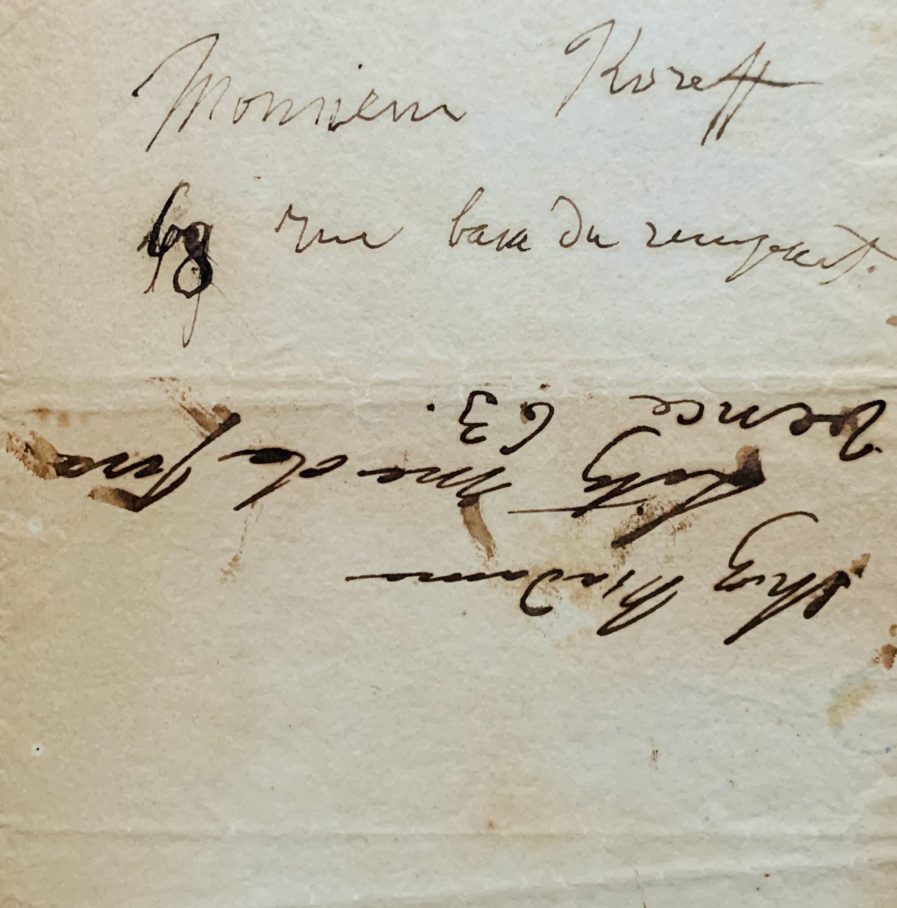 Monsieur Koreff
69 rue basse du rempart.
chez Madame
rue de la
vence 63.